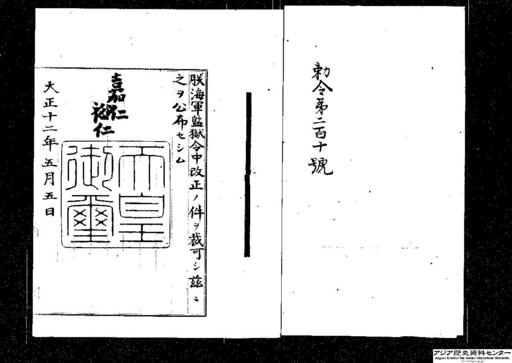 勅令第二百十號
朕海軍監獄令中改正ノ件ヲ裁可シ茲ニ
之ヲ公布セシム
嘉仁
裕仁
天皇御璽
大正十二年五月五日
アジア歴史資料センター
Japan Center for Asian Historical Records